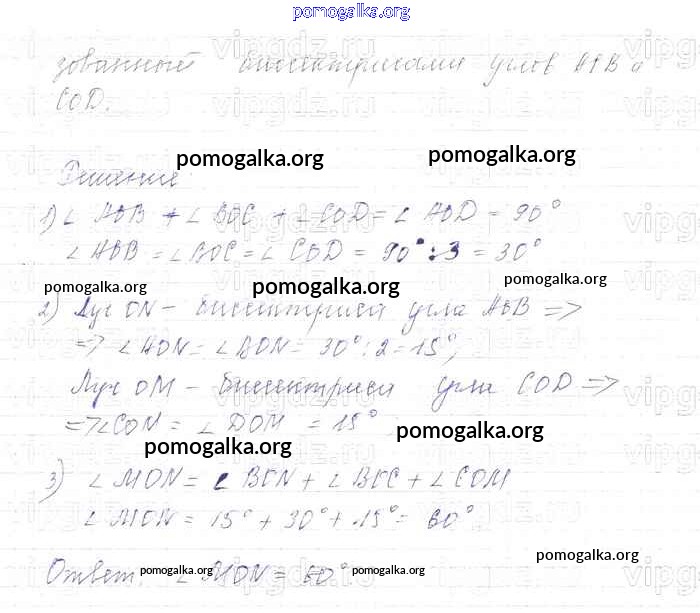 pomogalka.org
зованный биссектрисами углов AOB и
COD.
pomogalka.org pomogalka.org
Решение
1) ∠ AOB + ∠ BOC + ∠ COD = ∠ AOD = 90°
∠ AOB = ∠ BOC = ∠ COD = 90° : 3 = 30°
pomogalka.org pomogalka.org pomogalka.org
2) Луч ON – биссектриса угла AOB =>
=> ∠ AON = ∠ BON = 30° : 2 = 15°;
Луч OM – биссектриса угла COD =>
=> ∠ CON = ∠ DOM = 15°
pomogalka.org pomogalka.org
3) ∠ MON = ∠ BON + ∠ BOC + ∠ COM
∠ MON = 15° + 30° + 15° = 60°
pomogalka.org
Ответ: ∠ MON = 60°
pomogalka.org pomogalka.org